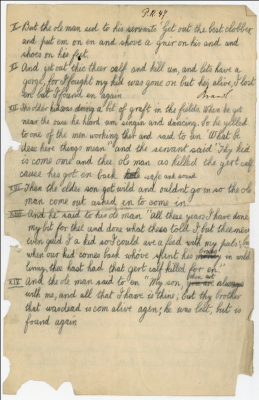 P.R.47
V- But the ole man sed to his servants "Get out the best clobber
and put em on en and shove a gner on his and and
shoes on his feet.
VI And get out thee thar calf and kill un, and lets have a
gorge, for I thought my kid was gone but hes alive, I lost
en but I found en again
VII His elder kid was doing a bit of graft in the fields. When he got
near the ouse he hard um singin and dancing. So he yelled
to one of the men working ther and said to un "What be
these here things mean" and the servant said "Thy kid
is come one and thee ole man as killed the gert calf
cause he's got en back safe and sound
Then the elder son got wild and ouldnt go in so the ole
man come out asked en to come in
And he said to his ole man "all these years I have done
my bit for thee and done what thees told I but thee never
even guid I a kid so I could ave a feed with my pals, but
when our kid comes back whove spent his in wild
living, thee hast had that gert calf killed for en"
XIV And the ole man said to en "My son, always
with me, and all that I have is thine; but thy brother
that was dead is com alive agen; he was lost, but is
found again